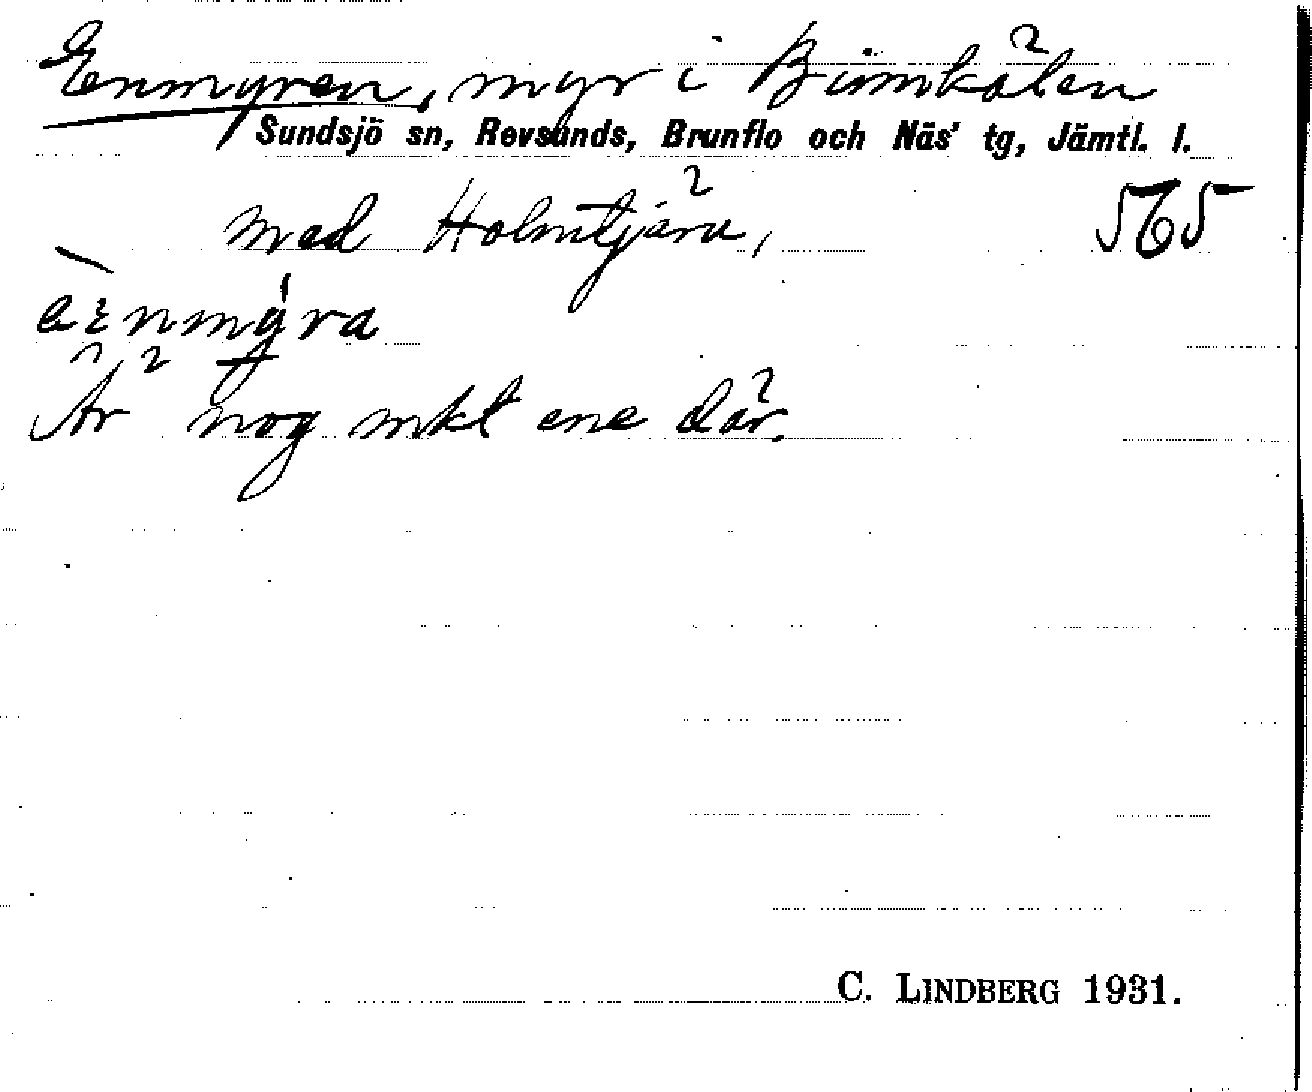 Enmyren, myr i Bimkålen
Sundsjö sn, Revsunds, Brunflo och Näs' tg, Jämtl. l.
med Holmtjärn, 565
Är nog mkt ene där.
C. LINDBERG 1931.